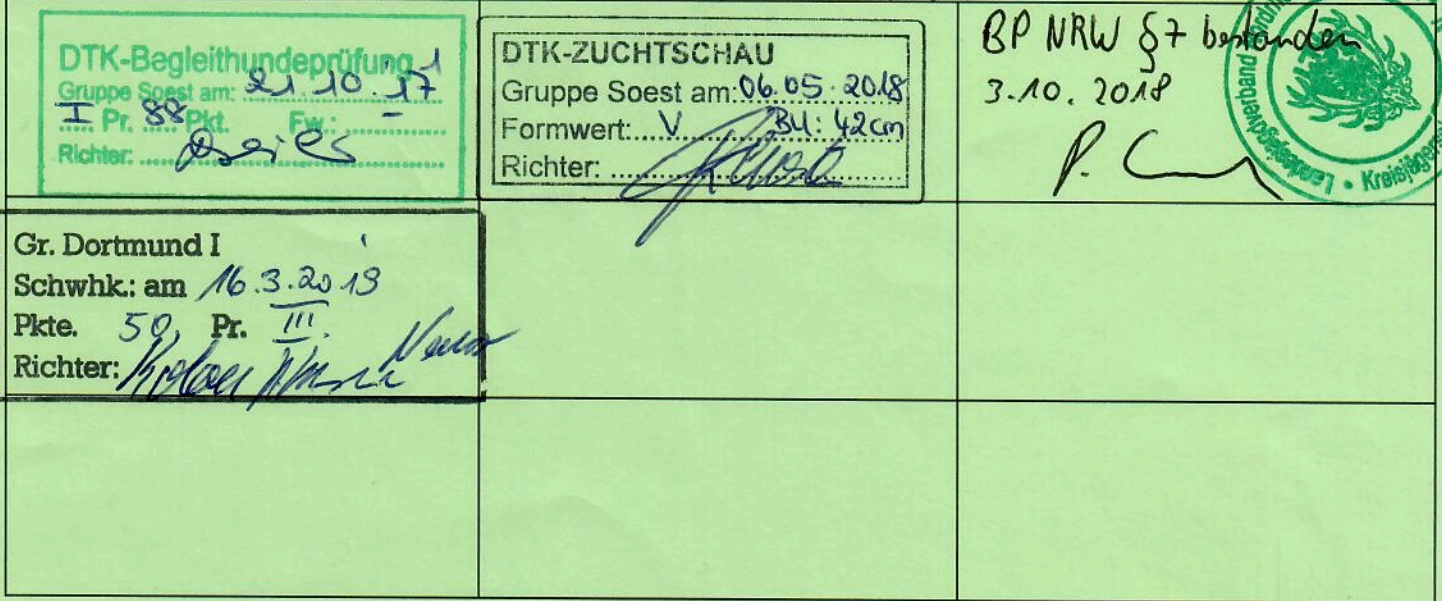 DTK-Begleithundeprüfung
Gruppe Soest am: 21.10.17
I Pr. 88 Pkt. Fw.: -
Richter:
DTK-ZUCHTSCHAU
Gruppe Soest am: 06.05.2018
Formwert: V BU: 42cm
Richter:
BP NRW §7 bestanden
3.10.2018
P.
Landesjagdverband
Gr. Dortmund I
Schwhk.: am 16.3.2019
Pkte. 50, Pr. III.
Richter: